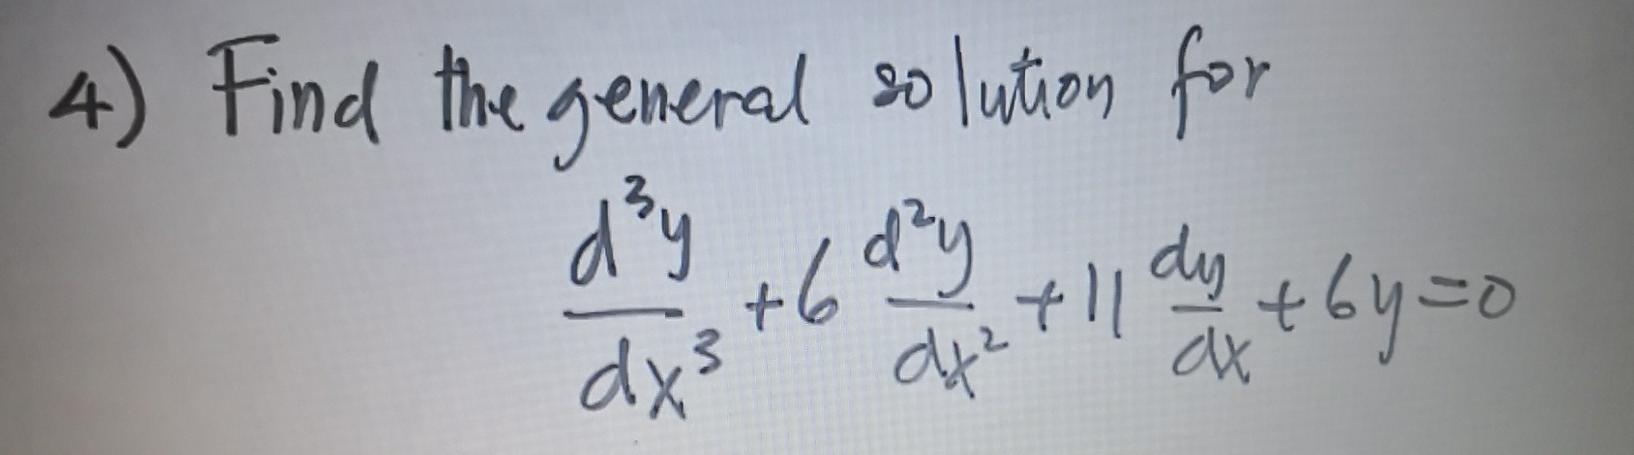 4) Find the general solution for
d³y/dx³ + 6 d²y/dx² + 11 dy/dx + 6y = 0